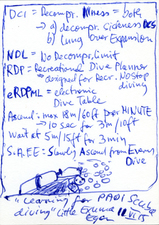 DCI = Decompr. Illness = both
a) decompr. sickeness DCS
b) lung over Expansion
NDL = No Decompr. Limit
RDP = Recreational Dive Planner
= designed for Recr. No stop
diving
eRDPML = electronic
Dive Table
Ascend: max 18m/60ft per MINUTE
= 10 sec for 3m/10ft
Wait at 5m/15ft for 3min
S.A.F.E: Slowly Ascend from Every
Dive
"Learning for PADI Scuba
diving"